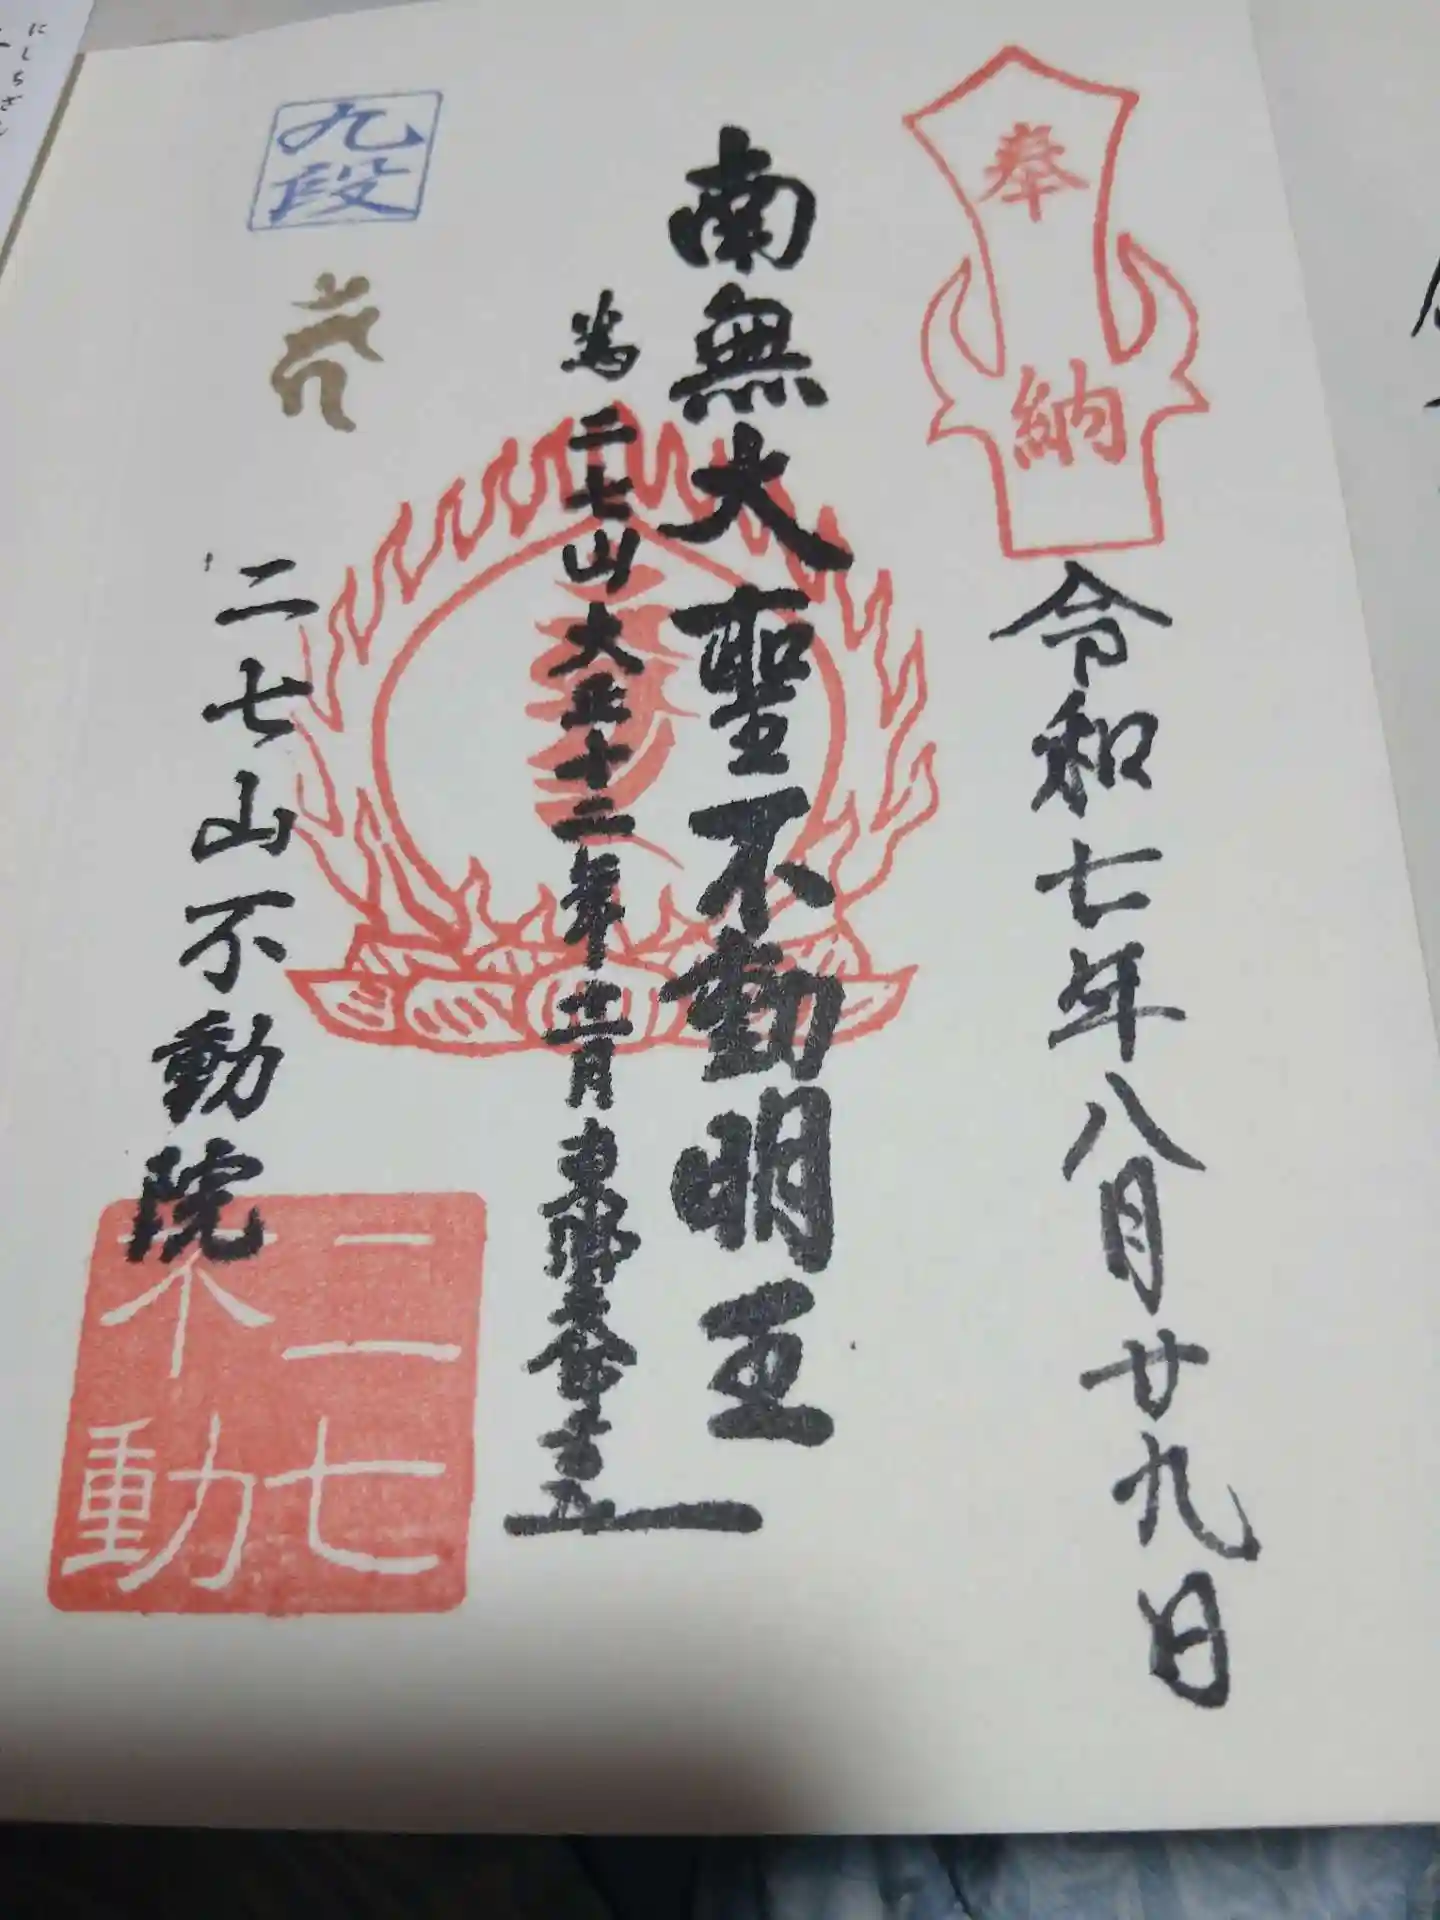 奉納
令和七年八月廿九日
南無大聖不動明王
為二七山大正十二年十二月東郷
二七山不動院
九段
二七
不動
にしちざん